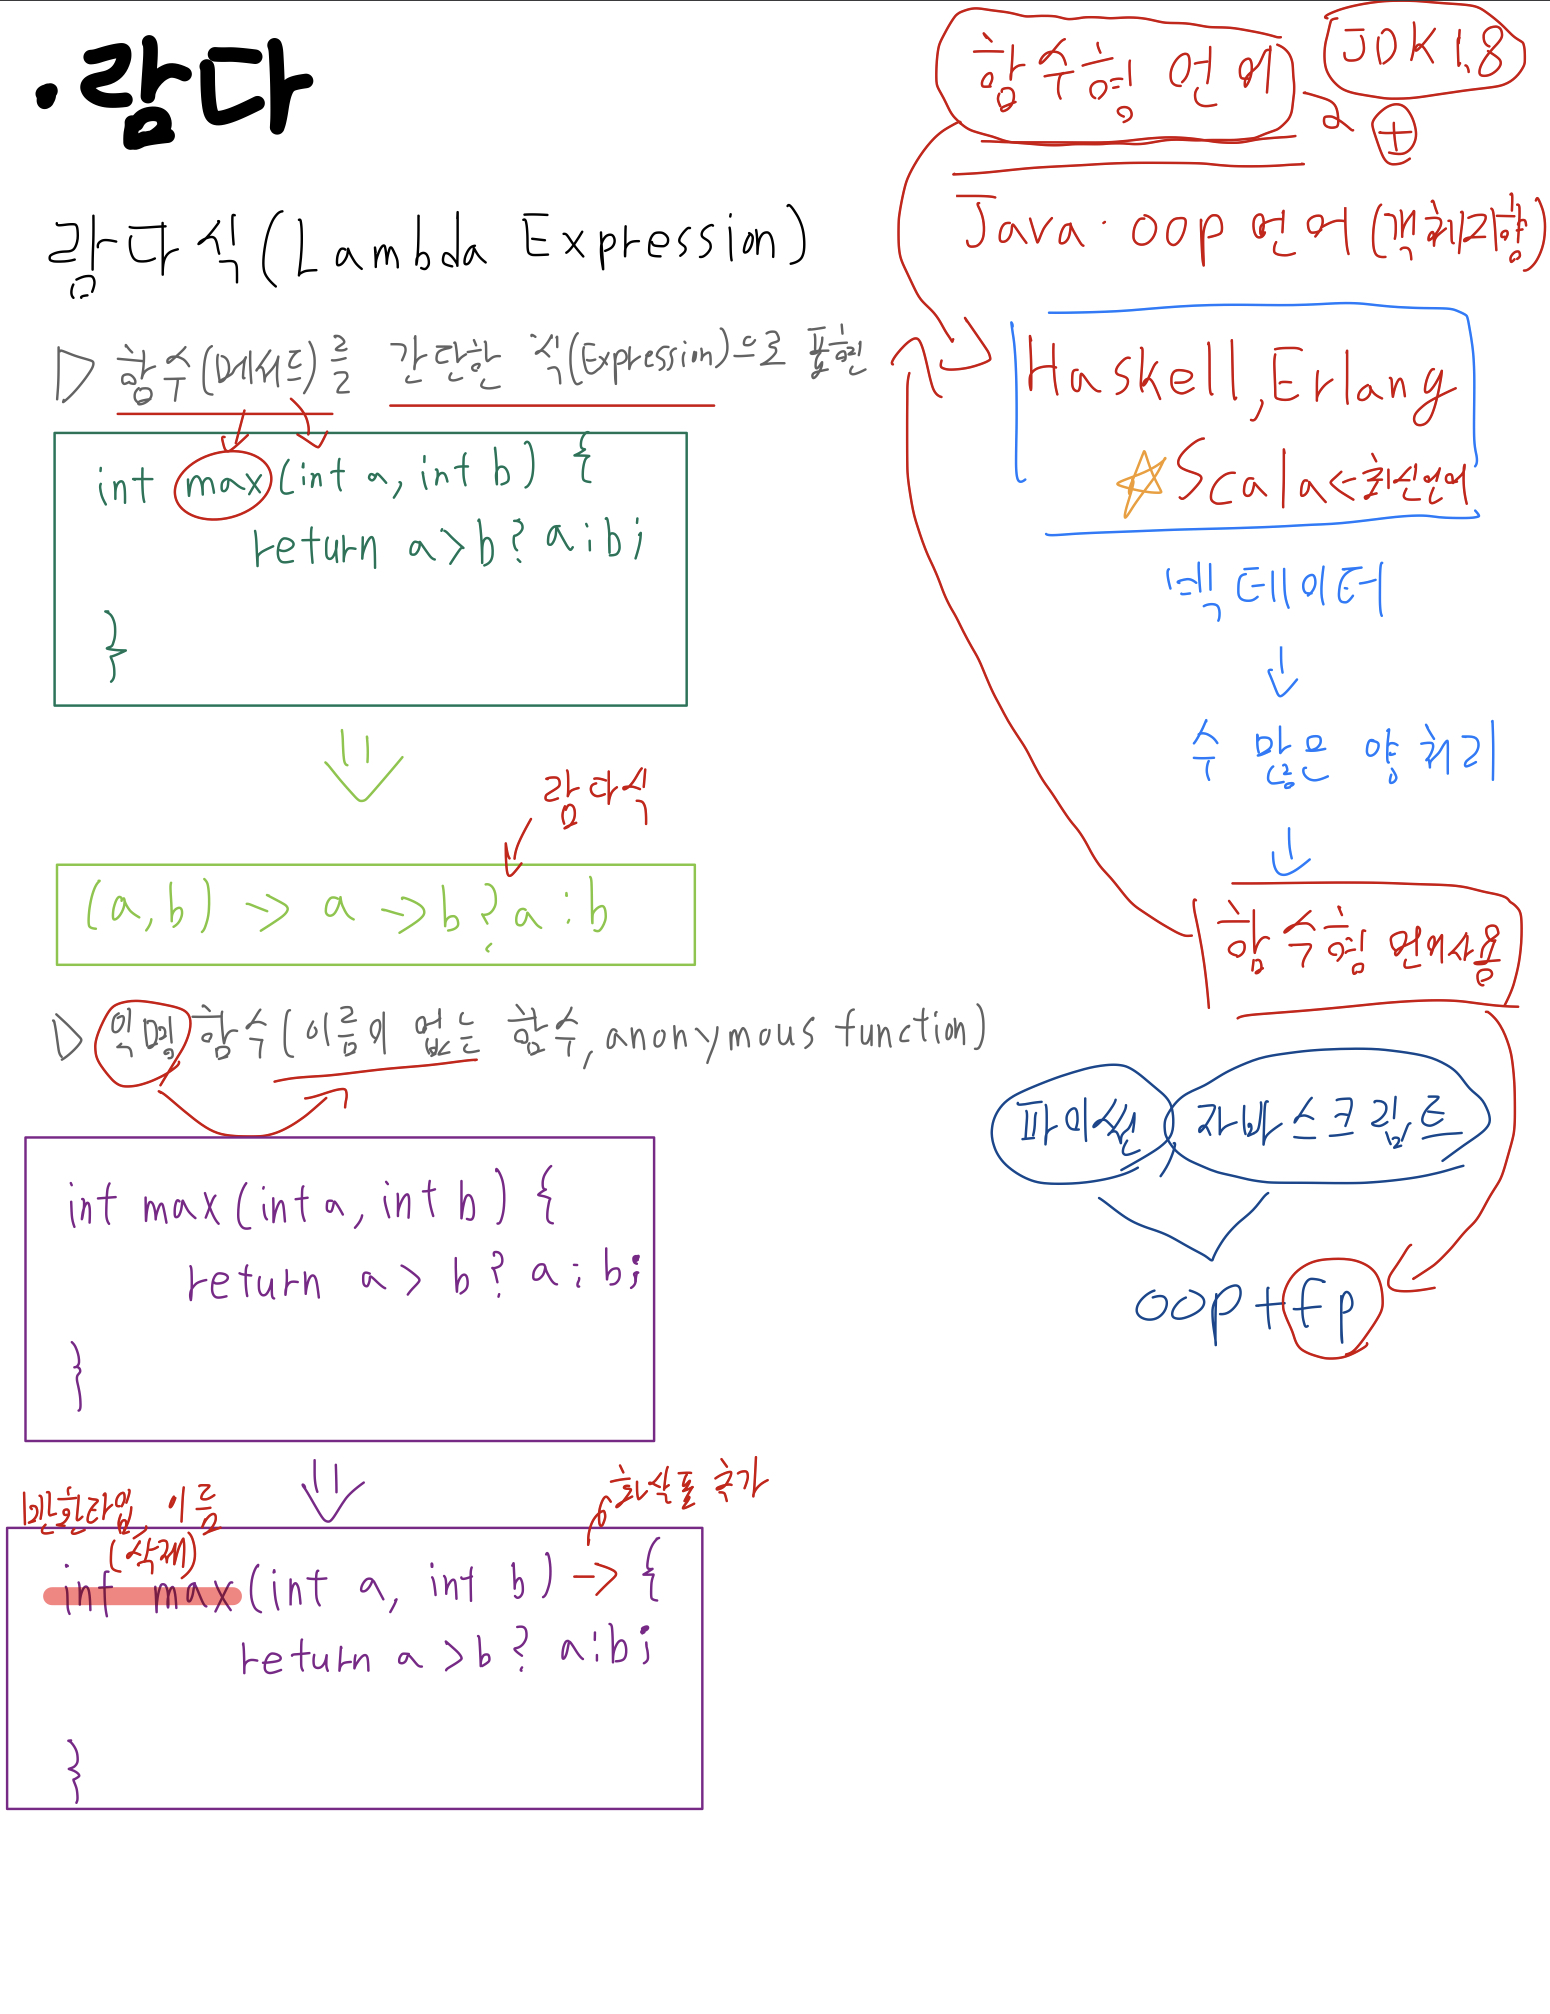 ·람다
람다식(Lambda Expression)
▷ 함수(메서드)를 간단한 식(Expression)으로 표현
int max(int a, int b) {
return a>b? a:b;
}
람다식
(a,b) -> a ->b?a:b
▷ 익명함수(이름이 없는 함수, anonymous function)
int max(int a, int b) {
return a> b? a:b;
}
반환타입, 이름
(삭제)
화살표 추가
int max(int a, int b) -> {
return a>b? a:b;
}
함수형 언어
JDK1.8
+
Java·OOP 언어(객체지향)
Haskell,Erlang
☆Scala<-최신언어
빅데이터
수 많은 양 처리
함수형 언어사용
파이썬 자바스크립트
OOP+fp